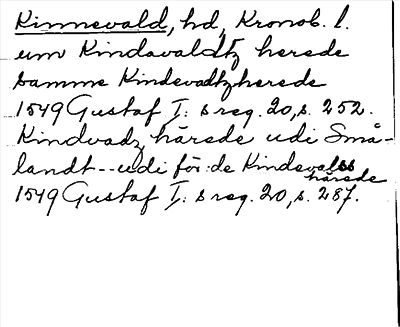 Kinnevald, hd, Kronob. l.
um Kindavaldtz herede
samme Kindevadtzherede
1549 Gustaf I: s reg. 20, s. 252.
Kindvadz härede udi Små-
landt -- udi för:de Kindevalss
härede
1549 Gustaf I: s reg. 20, s. 287.